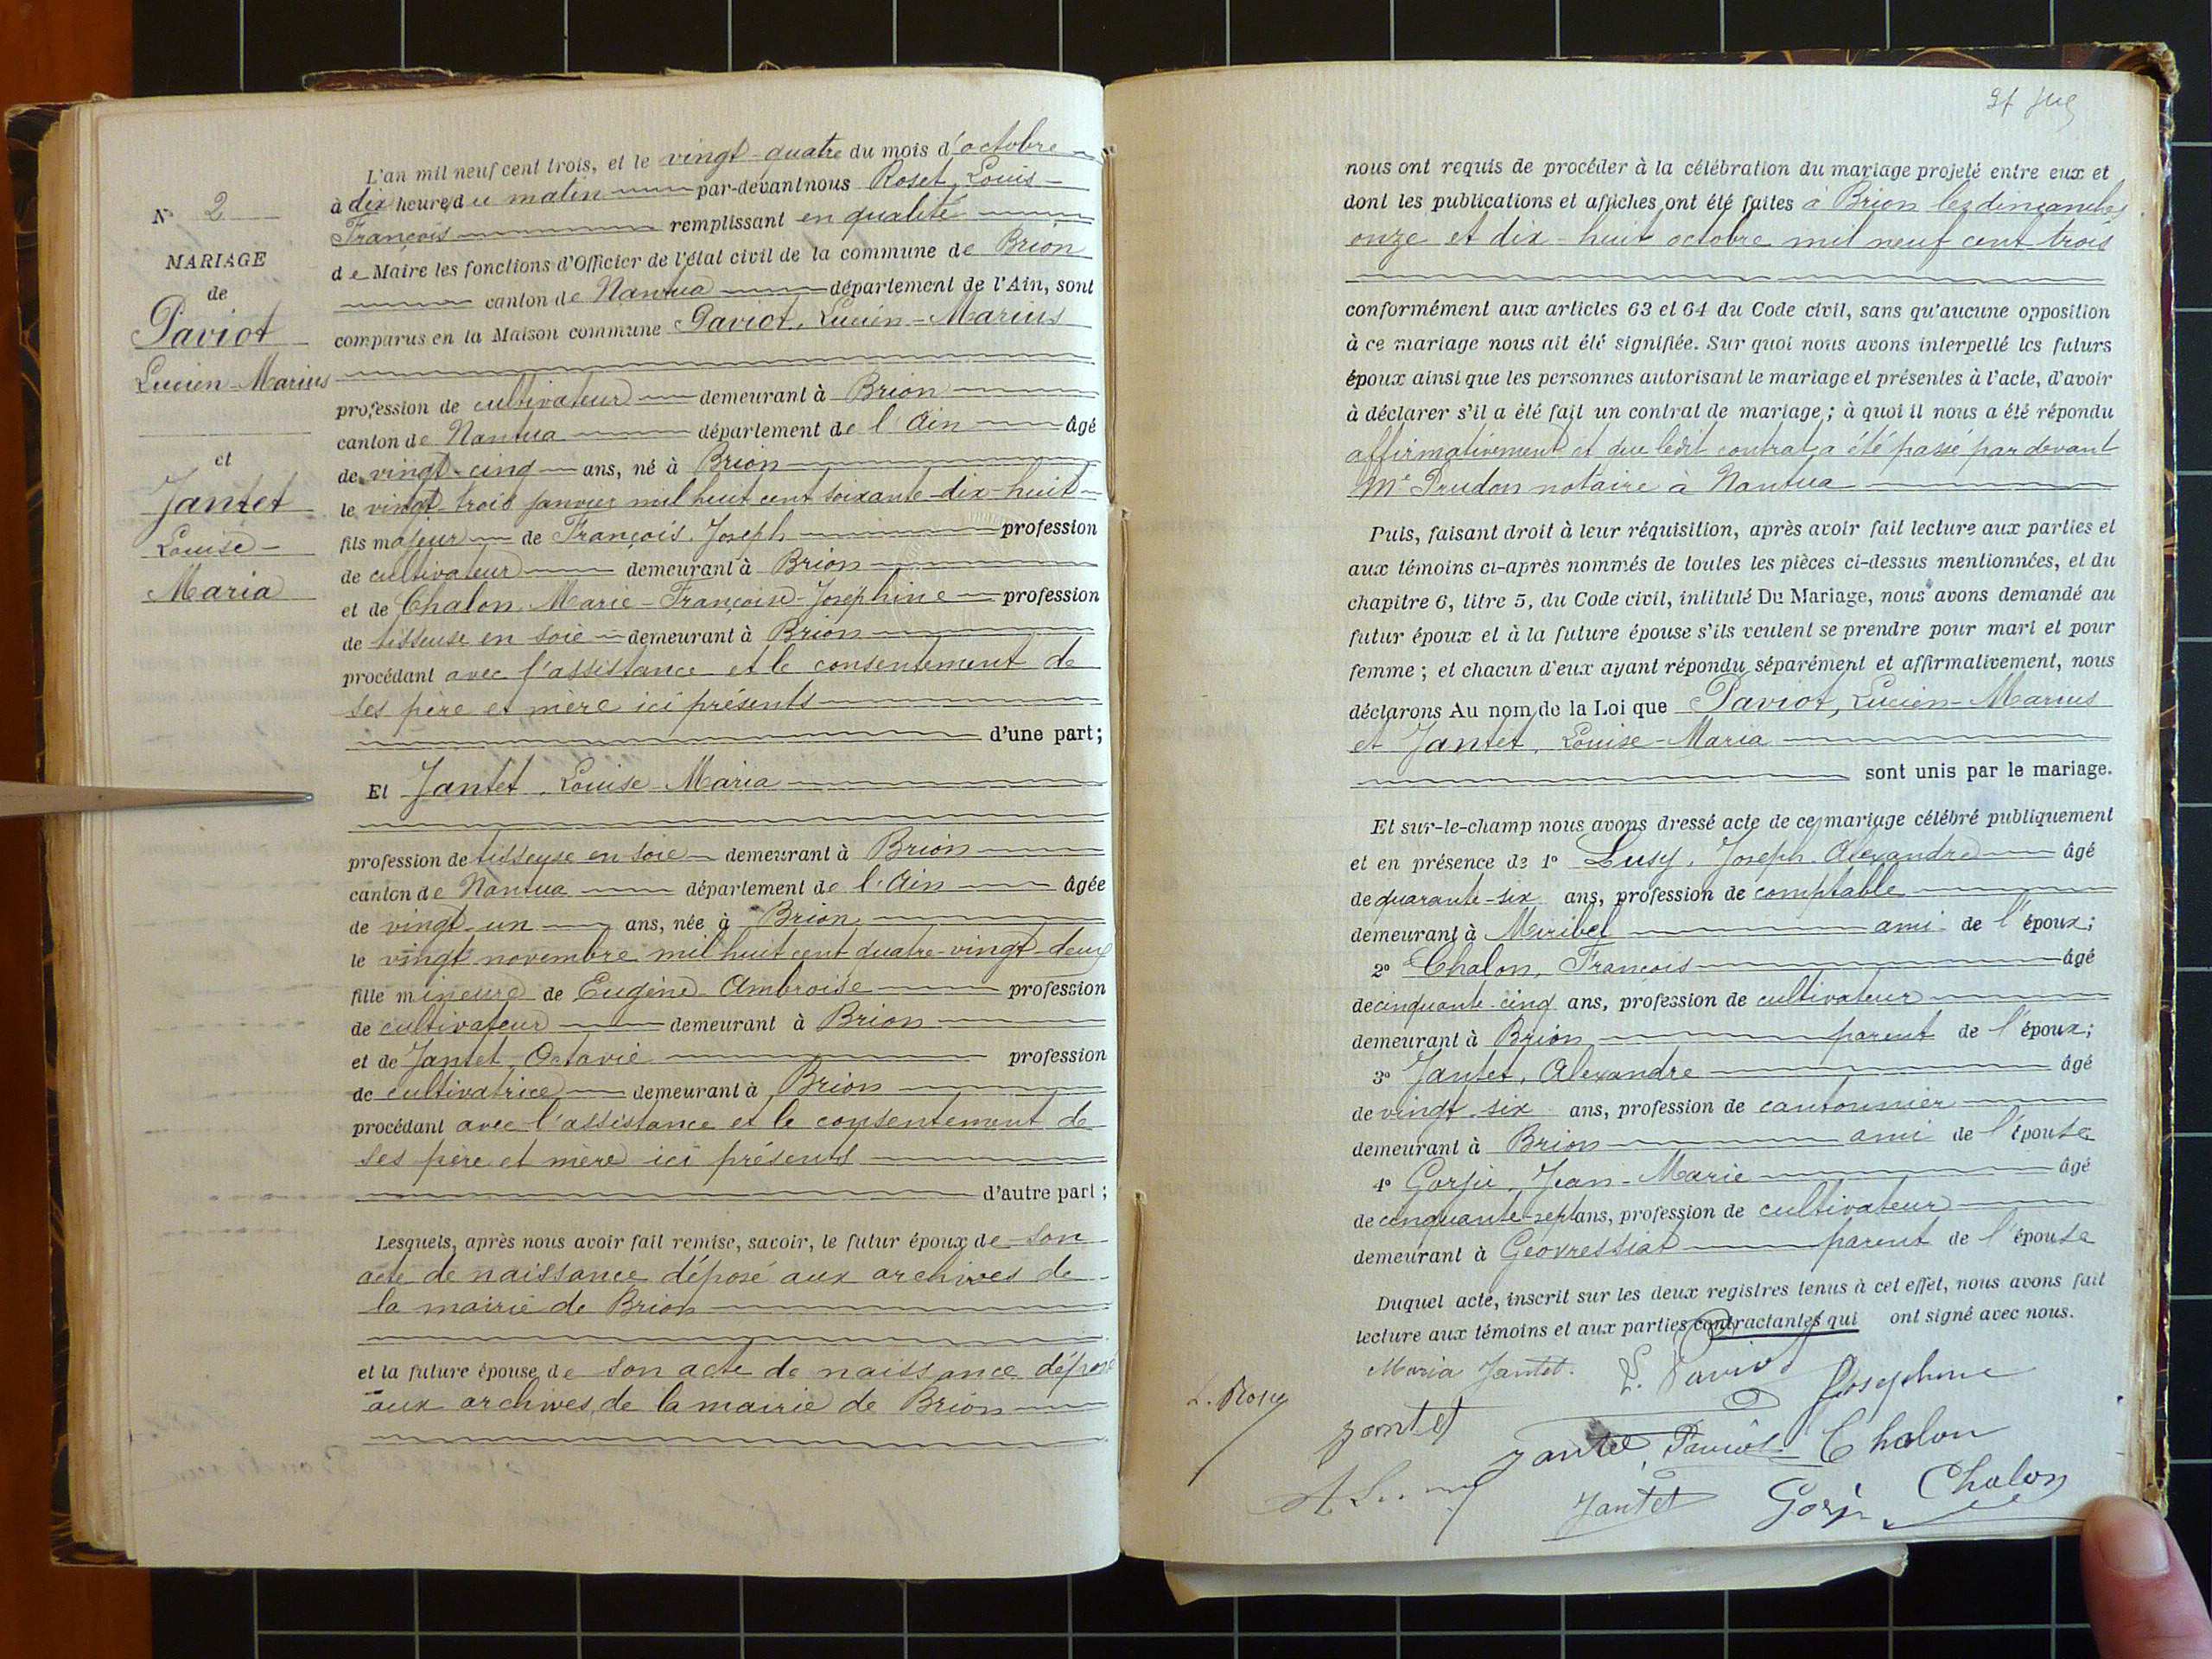 L'an mil neuf cent trois, et le vingt-quatre du mois d'octobre
à dix heures du matin par-devant nous Roset, Louis-
François remplissant en qualité
de Maire les fonctions d'Officier de l'état civil de la commune de Brion
canton de Nantua département de l'Ain, sont
comparus en la Maison commune Paviot, Lucien-Marius
N° 2
MARIAGE
de
Paviot
Lucien-Marius
et
Jantet
Louise-
Maria
profession de cultivateur demeurant à Brion
canton de Nantua département de l'Ain âgé
de vingt-cinq ans, né à Brion
le vingt-trois janvier mil huit cent soixante-dix-huit
fils majeur de François Joseph profession
de cultivateur demeurant à Brion
et de Chalon, Marie-Françoise-Joséphine profession
de tisseuse en soie demeurant à Brion
procédant avec l'assistance et le consentement de
ses père et mère ici présents
d'une part;
Et Jantet, Louise-Maria
profession de tisseuse en soie demeurant à Brion
canton de Nantua département de l'Ain âgée
de vingt-un ans, née à Brion
le vingt novembre mil huit cent quatre-vingt-deux
fille mineure de Eugène Ambroise profession
de cultivateur demeurant à Brion
et de Jantet, Octavie profession
de cultivatrice demeurant à Brion
procédant avec l'assistance et le consentement de
ses père et mère ici présents
d'autre part;
Lesquels, après nous avoir fait remise, savoir, le futur époux de son
acte de naissance déposé aux archives de
la mairie de Brion
et la future épouse de son acte de naissance déposé
aux archives de la mairie de Brion
nous ont requis de procéder à la célébration du mariage projeté entre eux et
dont les publications et affiches ont été faites à Brion les dimanches
onze et dix-huit octobre mil neuf cent trois
conformément aux articles 63 et 64 du Code civil, sans qu'aucune opposition
à ce mariage nous ait été signifiée. Sur quoi nous avons interpellé les futurs
époux ainsi que les personnes autorisant le mariage et présentes à l'acte, d'avoir
à déclarer s'il a été fait un contrat de mariage; à quoi il nous a été répondu
affirmativement et que ledit contrat a été passé par devant
Me Prudon notaire à Nantua
Puis, faisant droit à leur réquisition, après avoir fait lecture aux parties et
aux témoins ci-après nommés de toutes les pièces ci-dessus mentionnées, et du
chapitre 6, titre 5, du Code civil, intitulé Du Mariage, nous avons demandé au
futur époux et à la future épouse s'ils veulent se prendre pour mari et pour
femme; et chacun d'eux ayant répondu séparément et affirmativement, nous
déclarons Au nom de la Loi que Paviot, Lucien-Marius
et Jantet, Louise-Maria
sont unis par le mariage.
Et sur-le-champ nous avons dressé acte de ce mariage célébré publiquement
et en présence de 1° Lusy, Joseph Alexandre âgé
de quarante-six ans, profession de comptable
demeurant à Miribel ami de l'époux;
2° Chalon, François âgé
de cinquante-cinq ans, profession de cultivateur
demeurant à Brion parent de l'époux;
3° Jantet, Alexandre âgé
de vingt-six ans, profession de cantonnier
demeurant à Brion ami de l'épouse
4° Gorju, Jean-Marie âgé
de cinquante-sept ans, profession de cultivateur
demeurant à Géovressiat parent de l'épouse
Duquel acte, inscrit sur les deux registres tenus à cet effet, nous avons fait
lecture aux témoins et aux parties contractantes qui ont signé avec nous.
Maria Jantet. L. Paviot Josephine
L. Roset Jantet Jantet, Paviot Chalon
Jantet Gorju Chalon